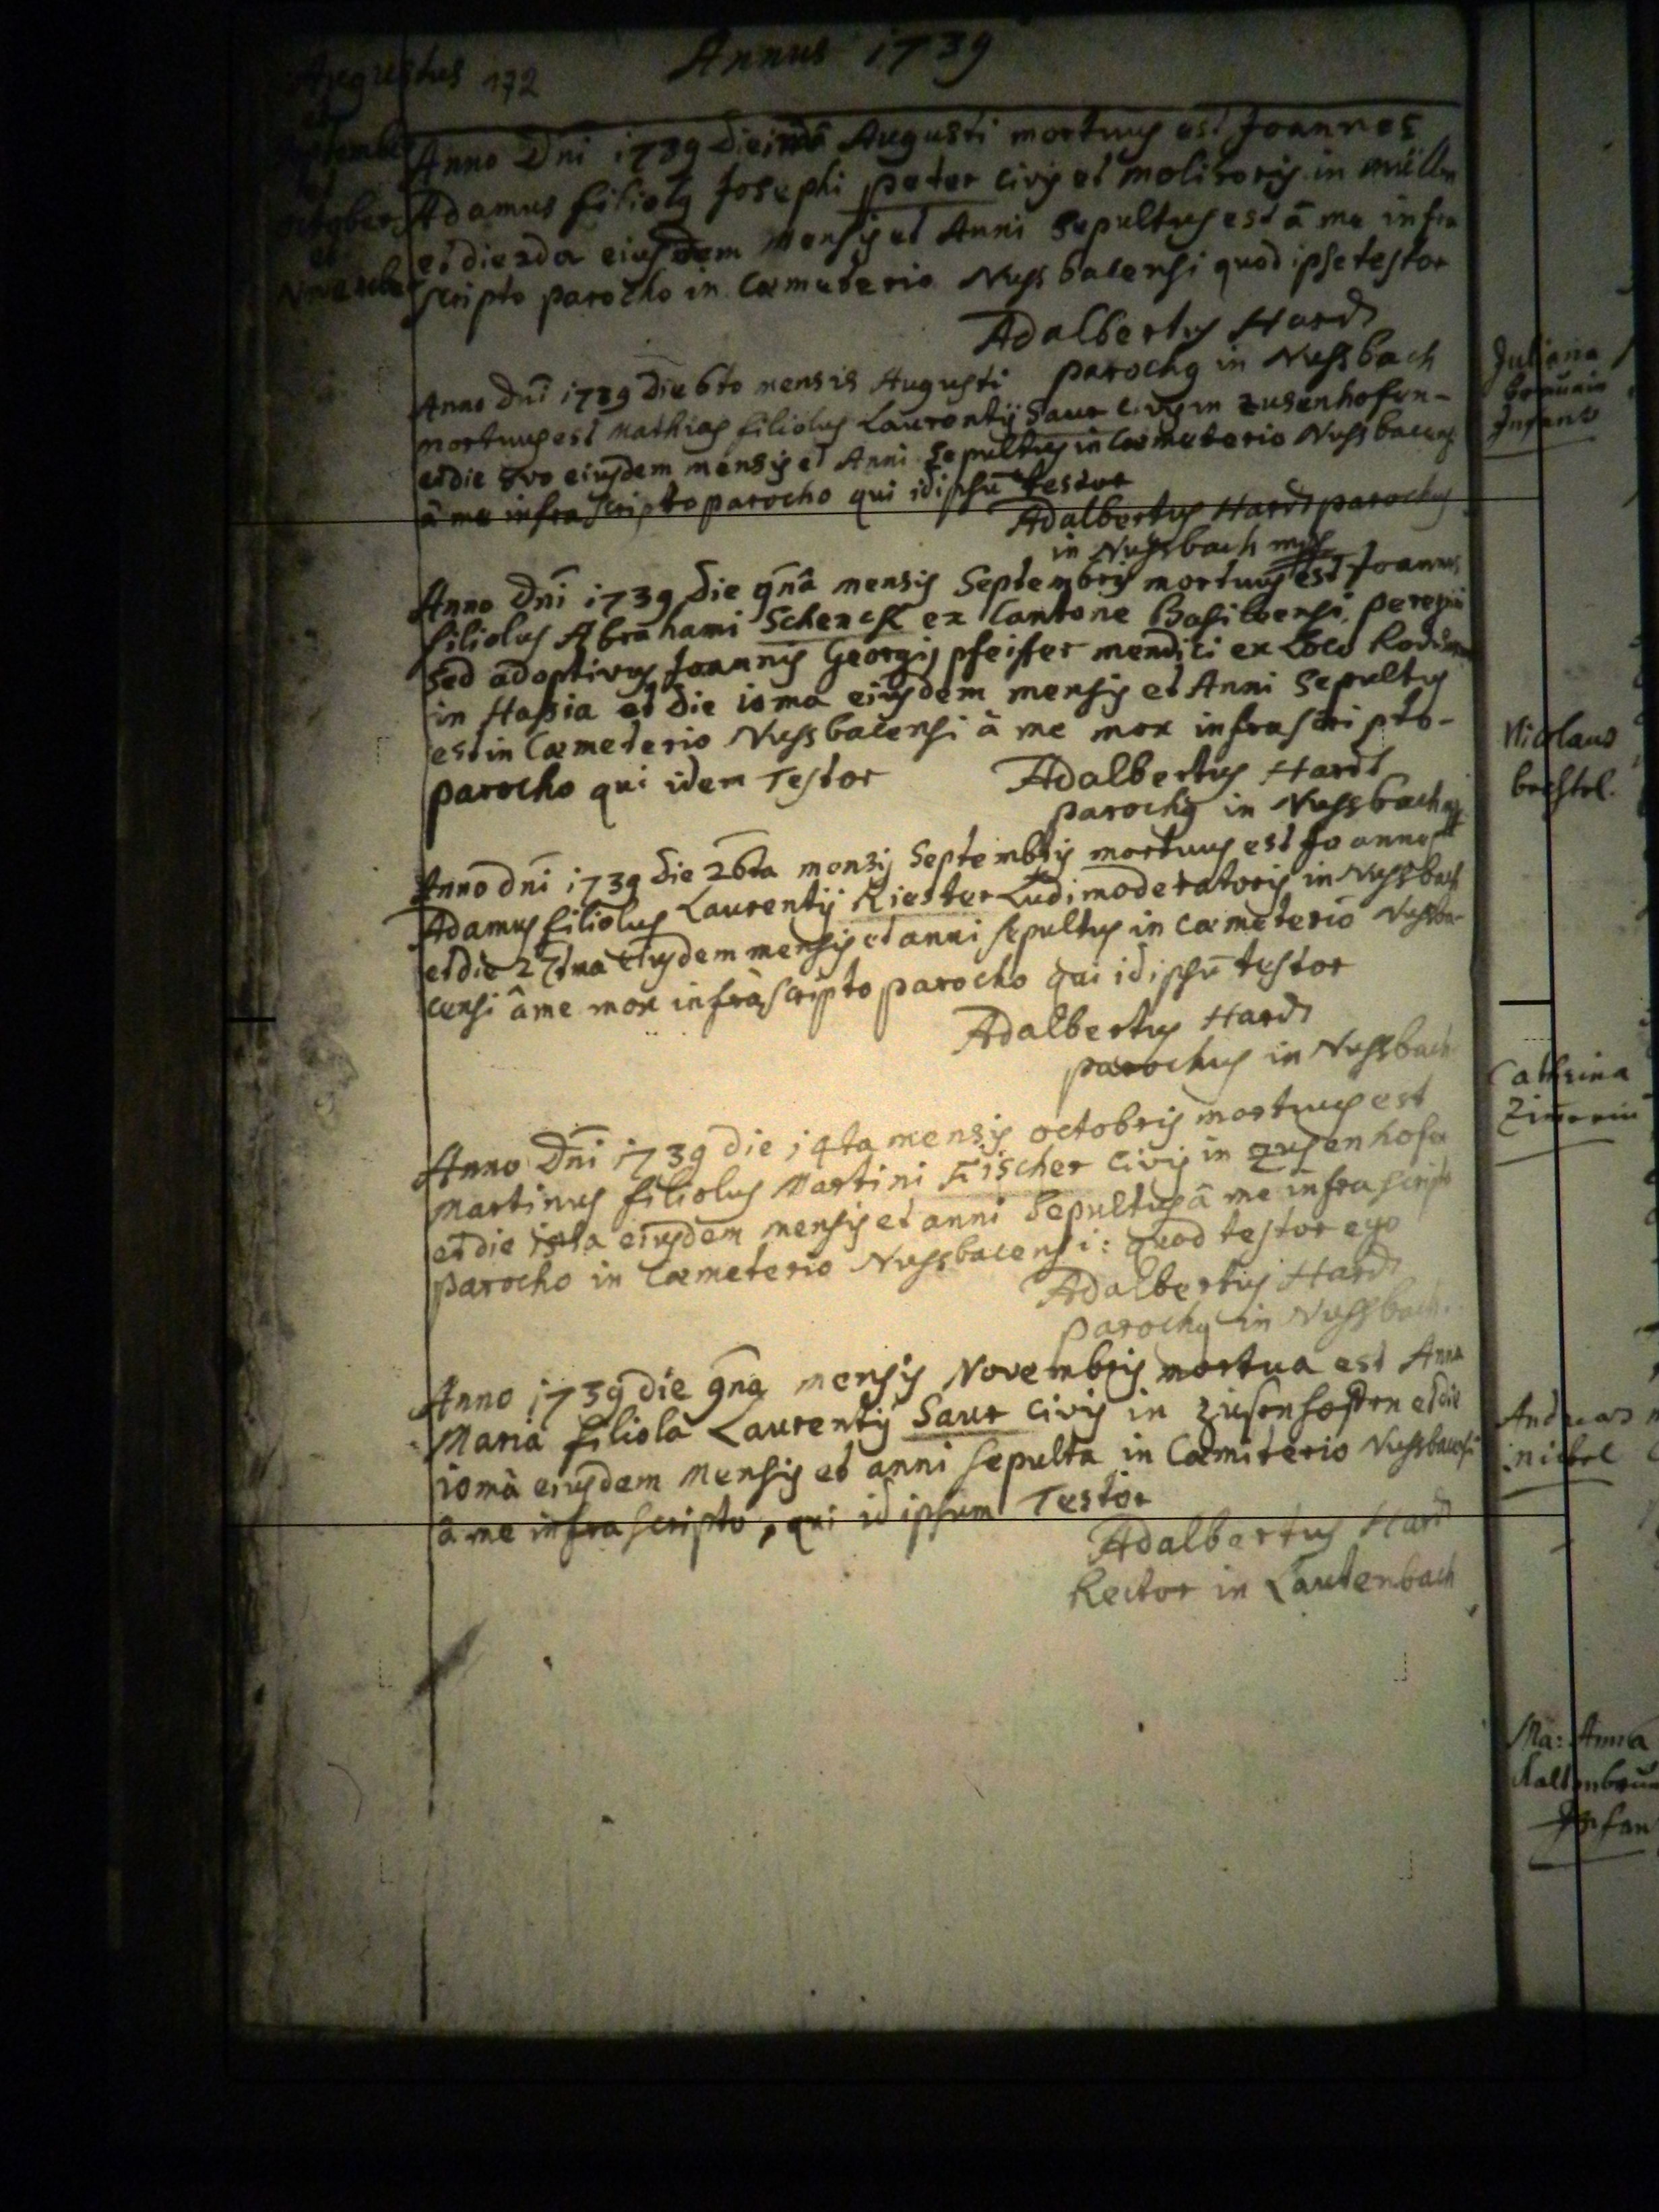 Annus 1739
Augustus 172
et
September
et
october
et
November
Anno Dni 1739 die Augusti mortuus est Joannes
Adamus filiolus Josephi peter civis et molitoris in müllen
et die 2da eiusdem mensis et Anni Sepultus est â me infra
scripto parocho in Coemeterio Nussbacensi quod ipse testor
Adalbertus Hardt
parochus in Nussbach
Anno dni 1739 die 6to mensis Augusti
mortuus est Mathias filiolus Laurentij Saur civis in Zusenhofen-
et die 8vo eiusdem mensis et Anni Sepultus in Coemeterio Nussbacensi
â me infrascripto parocho qui idipsū testor
Adalbertus Hardt parochus
in Nussbach
Anno Dni 1739 die 9nâ mensis Septembris mortuus est Joannes
filiolus Abrahami Schenck ex Cantone Basileensi,
sed adoptivus Joannis Georgij pfeiffer mendici ex Loco
in Hassia et die 10ma eiusdem mensis et Anni Sepultus
est in Coemeterio Nussbacensi à me mox infrascripto-
parocho qui idem Testor
Adalbertus Hardt
parochus in Nussbach
Anno dni 1739 die 26ta mensis Septembris mortuus est Joannes
Adamus filiolus Laurentij Riester Ludimoderatoris in Nussbach
et die 27tma eiusdem mensis et anni sepultus in coemeterio Nussba-
censi â me mox infràscripto parocho qui idipsū testor
Adalbertus Hardt
parochus in Nussbach
Anno Dni 1739 die 14ta mensis octobris mortuus est
Martinus filiolus Martini Fischer civis in zusenhofen
et die eiusdem mensis et anni Sepultus â me infrascripto
parocho in Coemeterio Nussbacensi: quod testor ego
Adalbertus Hardt
parochus in Nussbach.
Anno 1739 die 9na mensis Novembris mortua est Anna
Maria filiola Laurentij Saur civis in zusenhofen et die
10mà eiusdem Mensis et anni sepulta in Coemiterio Nussbacensi
a me infrascripto, qui id ipsum Testor
Adalbertus Hardt
Rector in Lautenbach
Juliana
braunin
Infans
Nicolaus
bechtel.
Cathrina
Zimerin
Andreas
Ma: Anna